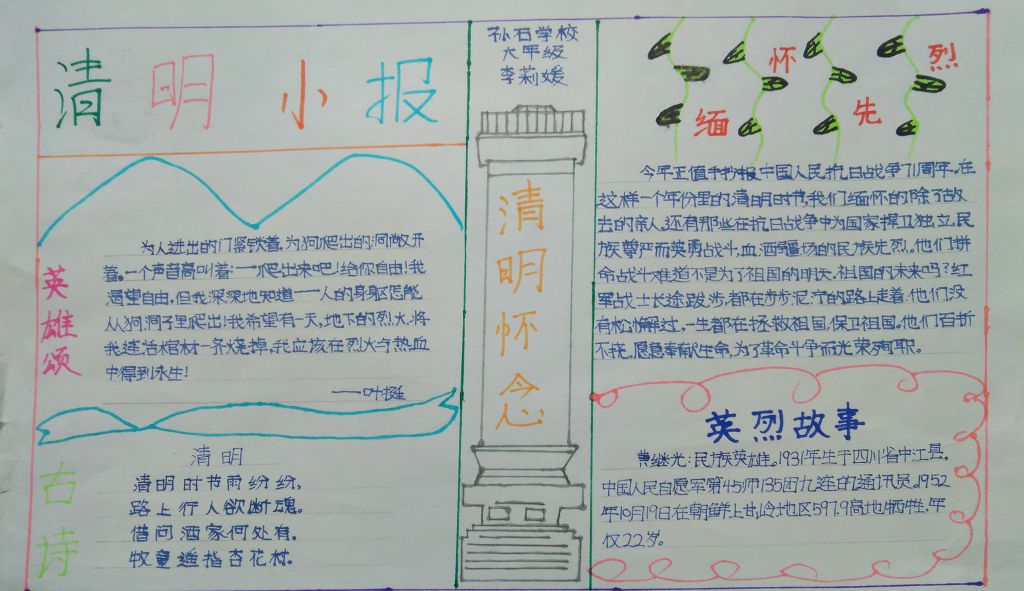 清明小报
英雄颂
为人进出的门紧锁着,为狗爬出的洞敞开
着。一个声音高叫着:——爬出来吧!给你自由!我
渴望自由,但我深深地知道——人的身躯怎能
从狗洞子里爬出!我希望有一天,地下的烈火,将
我连活棺材一齐烧掉,我应该在烈火与热血
中得到永生!
——叶挺
古诗
清明
清明时节雨纷纷,
路上行人欲断魂。
借问酒家何处有。
牧童遥指杏花村。
孙石学校
六年级
李莉媛
清明怀念
缅怀先烈
今年正值手抄报中国人民抗日战争71周年。在
这样一个年份里的清明时节,我们缅怀的除了故
去的亲人,还有那些在抗日战争中为国家捍卫独立,民
族尊严而英勇战斗,血洒疆场的民族先烈。他们拼
命战斗难道不是为了祖国的明天,祖国的未来吗?红
军战士长途跋涉,都在步步泥泞的路上走着,他们没
有松懈过,一生都在拯救祖国,保卫祖国。他们百折
不挠,愿意奉献生命,为了革命斗争而光荣殉职。
英烈故事
黄继光:民族英雄。1931年生于四川省中江县,
中国人民自愿军第45师135团九连的通讯员。1952
年10月19日在朝鲜上甘岭地区597.9高地牺牲,年
仅22岁。